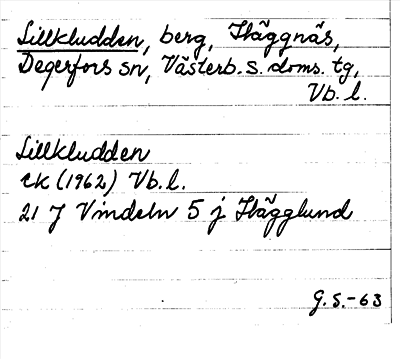 Lillkludden, berg, Häggnäs,
Degerfors sn, Västerb. s. doms. tg,
Vb. l.
Lillkludden
ek (1962) Vb. l.
21 J Vindeln 5 j Hägglund
G.S.-63